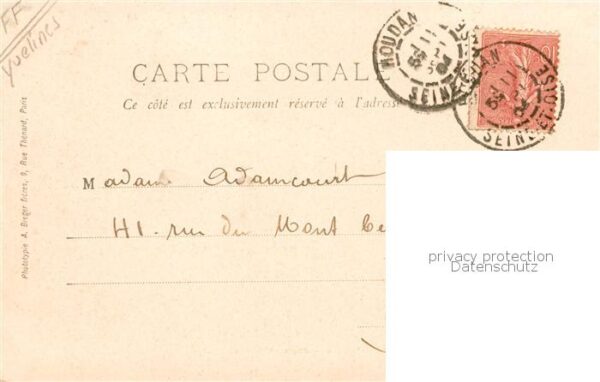 FF
Yvelines
CARTE POSTALE
Ce côté est exclusivement réservé à l'adresse
Madame Adamcourt
41. rue du Mont Ce
Phototypie A. Breger frères, 9, Rue Thénard, Paris
HOUDAN
SEINE
SEINE-ET-OISE
privacy protection
Datenschutz